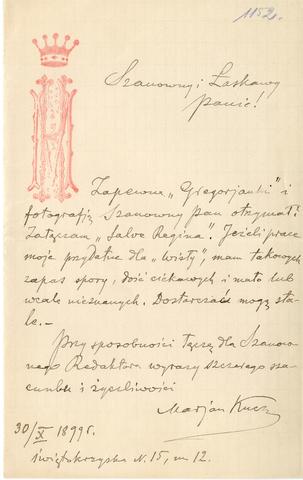 1152.
Szanowny i Łaskawy
Panie!
Zapewne „Gregorjanki" i
fotografją Szanowny Pan otrzymał?
Załączam „Salve Regina". Jeżeli prace
moje przydatne dla „Wisły", mam takowych
zapas spory, dość ciekawych i mało lub
wcale nieznanych. Dostarczać mogę sta-
le.—
Przy sposobności łączę dla Szanow-
nego Redaktora wyrazy szczerego sza-
cunku i życzliwości
Marjan
30/X 1899 r.
Świętokrzyska N. 15, m 12.